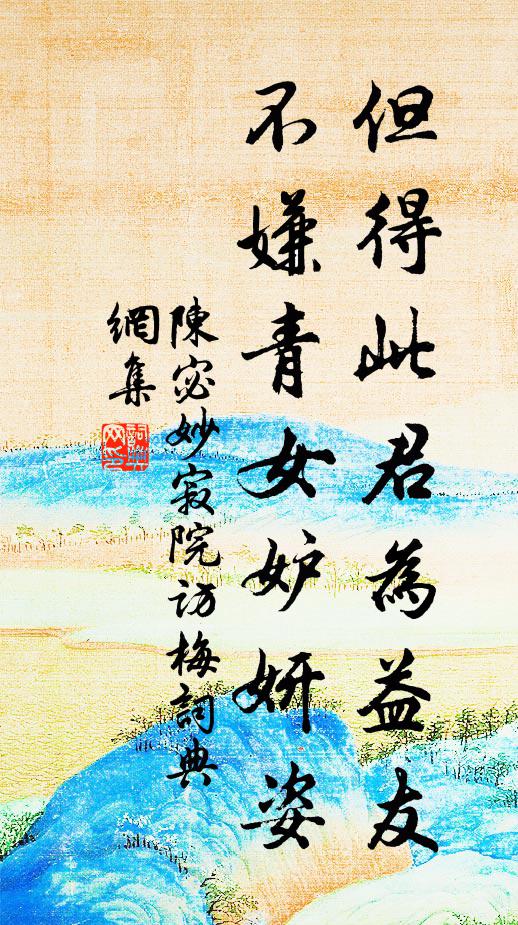 但得此君為益友
不嫌青女妒妍姿
陳宓妙寂院訪梅詞典
網集